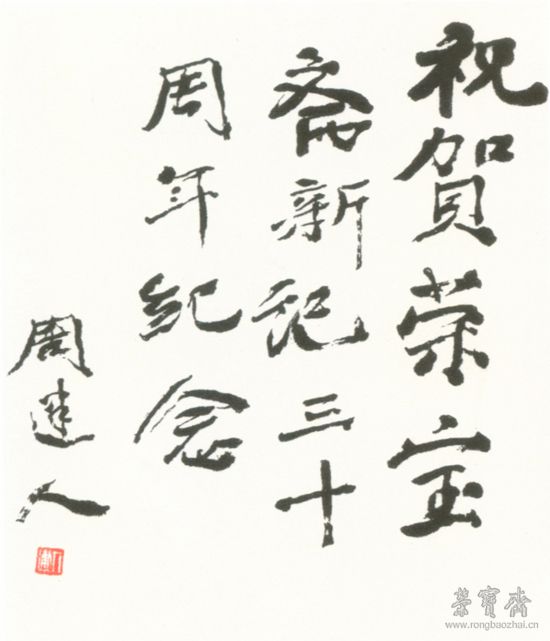 祝賀荣宝
斋新记三十
周年纪念
周建人
榮寶齋
www.rongbaozhai.cn